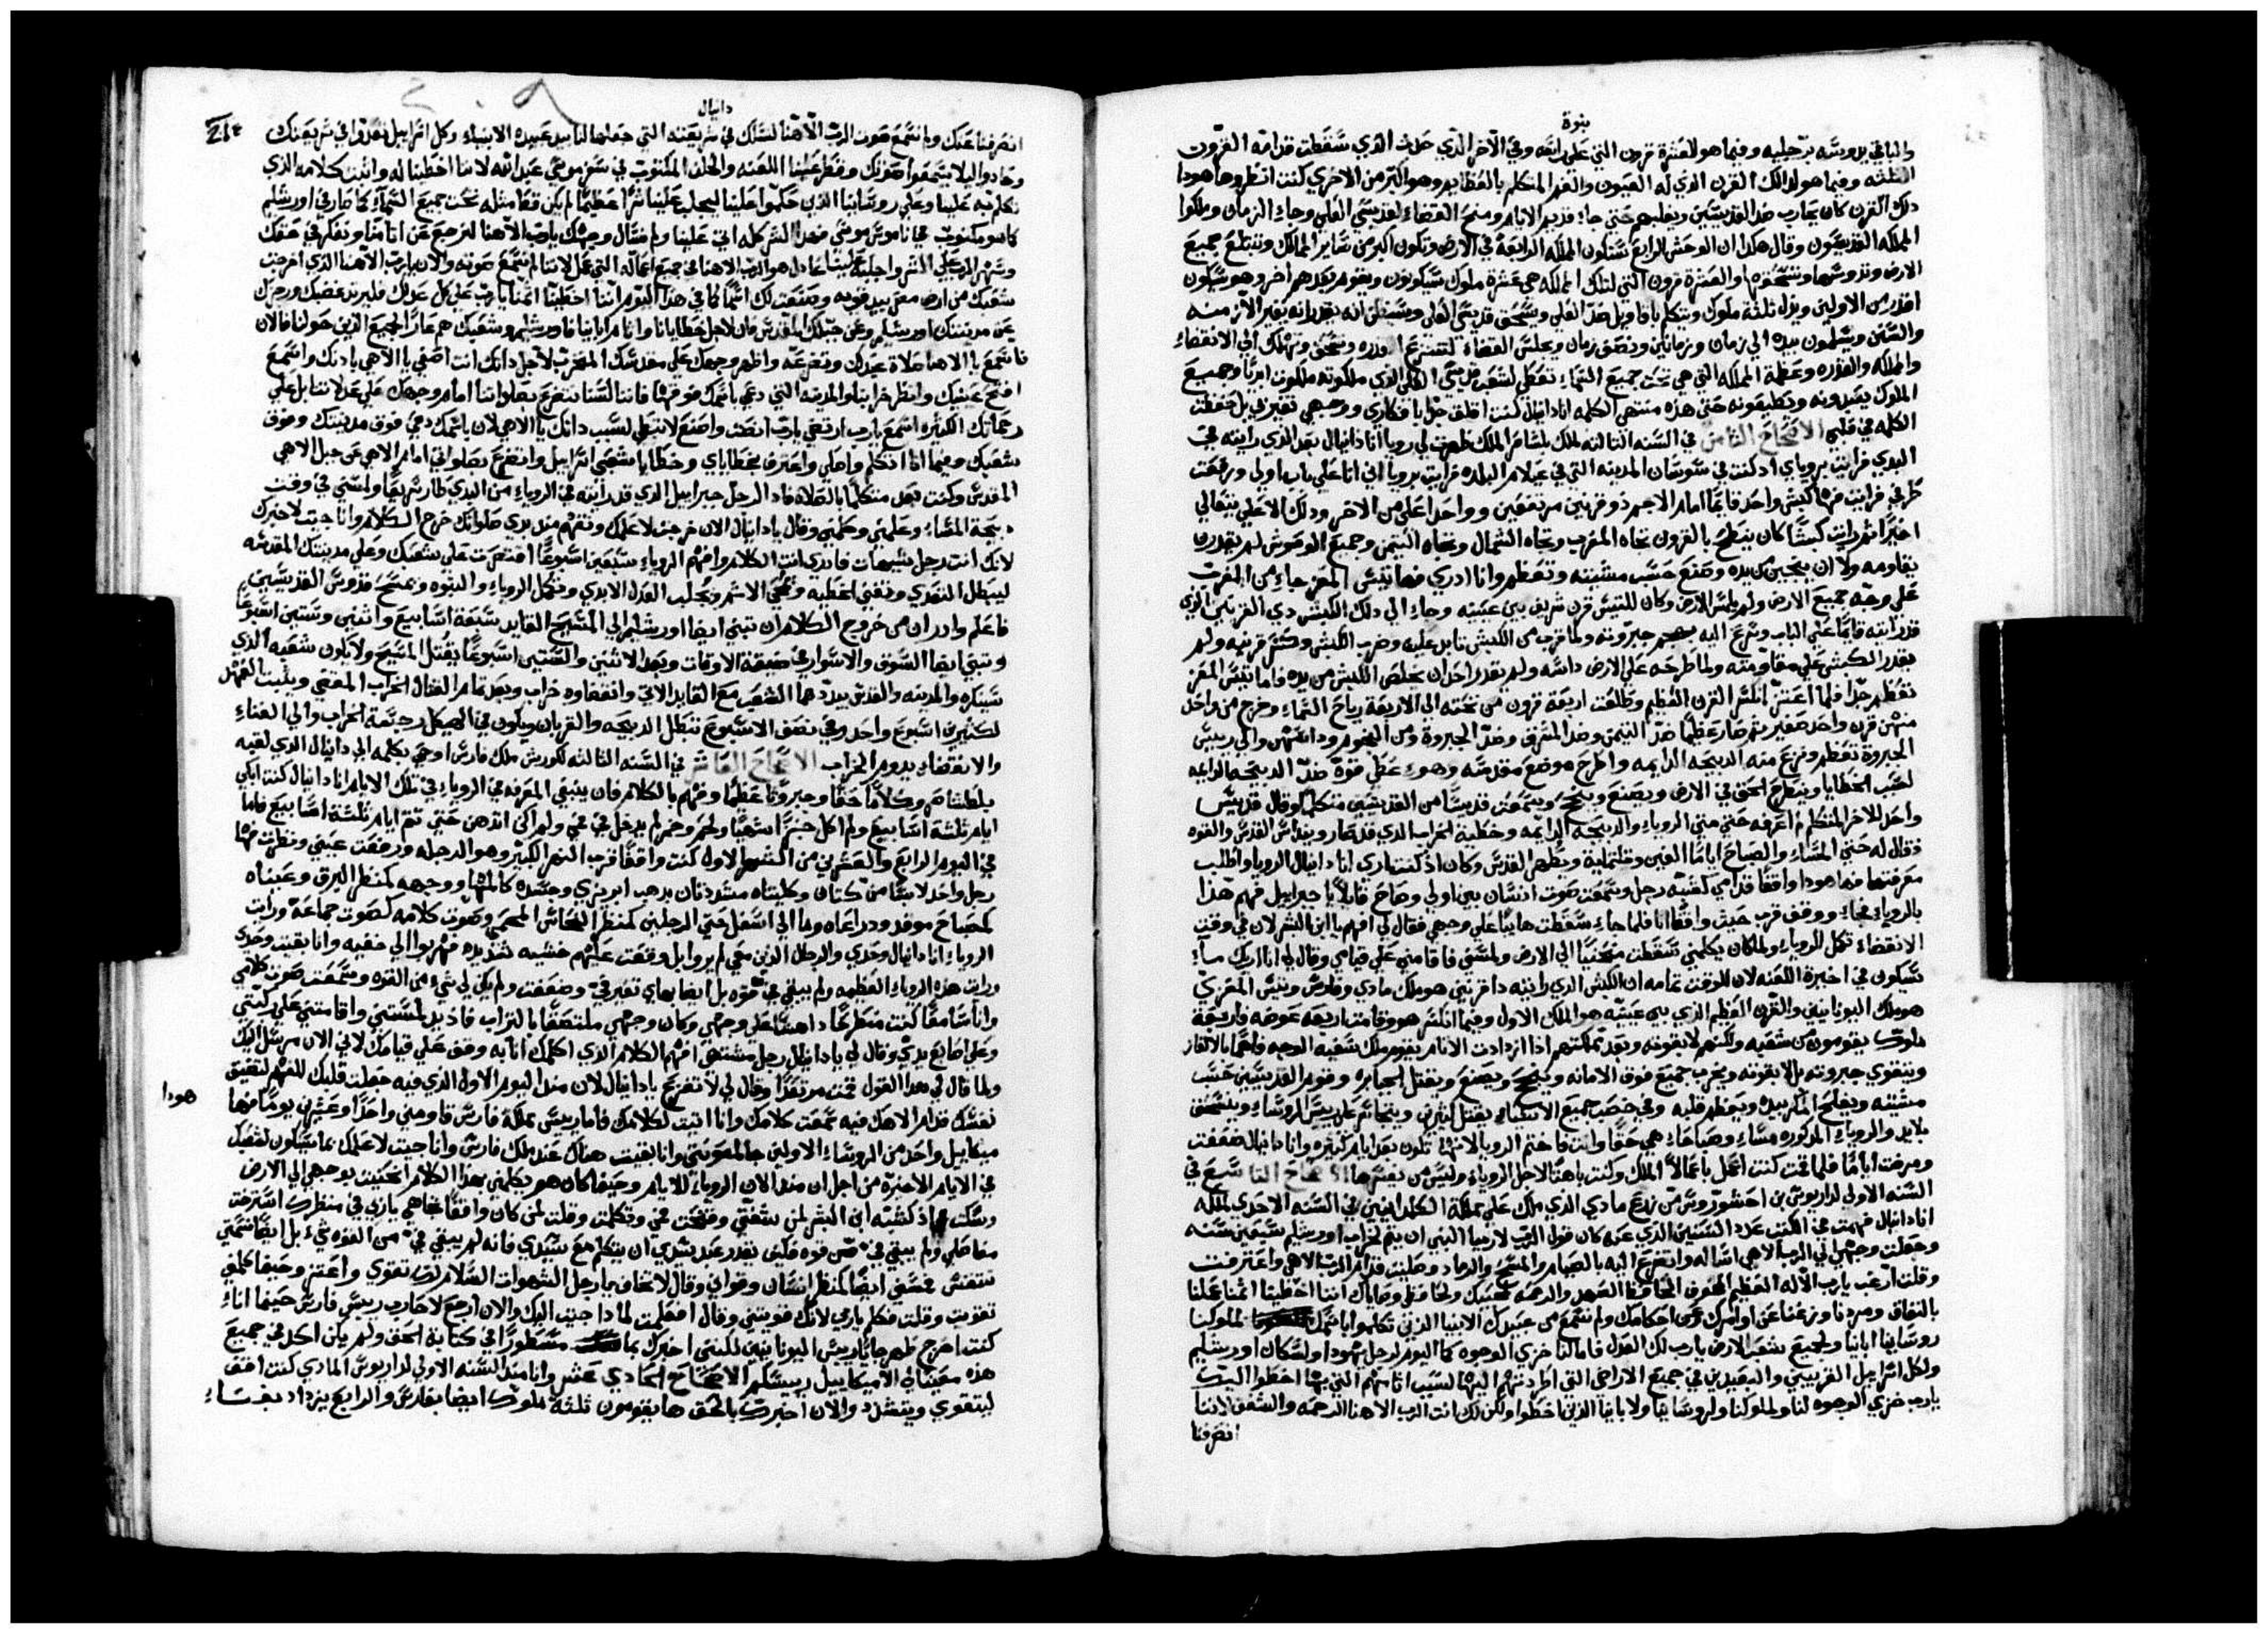 نبوة
والباقي يدوسه برجليه وفيما هو للعشرة قرون التي على راسه وفي الاخر الذي حدث الذي سقطت قدامه القرون
الثلثه وفيما هو لذلك القرن الذي له العيون والفم المتكلم بالعظايم وهو اكبر من الاخري كنت انظر وها هودا
ذلك القرن كان يحارب ضد القديسين ويغلبهم حتي جاء قديم الايام ومنح القضاء لقديسي العلي وجاء الزمان وملكوا
المملكه القديسون وقال هكذا ان الوحش الرابع ستكون المملكه الرابعة في الارض وتكون اكبر من ساير الممالك وتبتلع جميع
الارض وتدوسها وتسحقها والعشرة قرون التي لتلك المملكه هي عشرة ملوك سيكونون ويقوم بعدهم اخر وهو سيكون
اقدر من الاولين ويذل ثلثة ملوك ويتكلم باقاويل ضد العلي ويسحق قديسي العلي وسيظن انه يقدر انه يغير الازمنه
والسنن ويسلمون بيده الي زمان وزمانين ونصف زمان ويجلس القضاء لتنتزع القدره وتسحق وتهلك الي الانقضاء
والملكه والقدره وعظمة المملكه التي هي تحت جميع السماء تعطي لشعب قديسي العلي الذي ملكوته ملكوت ابديا وجميع
الملوك يعبدونه ويطيعونه حتي هذه منتهي الكلمه انا دانيال كنت اقلق جدا بافكاري ووجهي تغير في بل حفظت
الكلمه في قلبي الاصحاح الثامن في السنه الثالثه لملك بلشاصر الملك ظهرت لي رويا انا دانيال بعد الذي رايته في
البدي فرايت بروياي اذ كنت في سوسان المدينه التي في عيلام البلده فرايت برويا اني انا علي باب اولي ورفعت
طرفي فرايت فها كبش واحد قايما امام الاجمه ذو قرنين مرتفعين وواحدا اعلي من الاخر وذلك الاعلي يتعالي
اخيرا ثم رايت كبشا كان ينطح بالقرون تجاه المغرب وتجاه الشمال وتجاه التيمن وجميع الوحوش لم يقدرن
يقاومه ولا ان ينجين من يده وصنع حسب مشيته وتعظم وانا ادري فها تيس المعز جاء من المغرب
علي وجه جميع الارض ولم يلمس الارض وكان للتيس قرن شريف بين عينيه وجاء الي ذلك الكبش ذي القرنين الذي
قد رايته قايما علي الباب وسرع اليه بهجم جبروته ولما قرب من الكبش تابر عليه وضرب الكبش وكسر قرنيه ولم
يقدر الكبش علي مقاومته ولما طرحه علي الارض داسه ولم يقدر احد ان يخلص الكبش من يده فاما تيس المعز
تعظم جدا فلما اعتز انكسر القرن العظيم وطلعت اربعة قرون من تحته الي الاربعة رياح السماء وخرج من واحد
منهن قرن واحد صغير ثم صار عظيما ضد التيمن وضد المشرق وضد الجبروة ومن النجوم وداسهن والي رييس
الجبروة تعظم ونزع منه الدبيحه الدايمه واطرح موضع مقدسه وهو اعطي قوة ضد الدبيحه الدايمه
لحسب الخطايا وينطرح الحق في الارض ويصنع وينجح وسمعت قديسا من القديسين متكلما وقال قديس
واحد للاخر المتكلم لا اعرفه حتي متي الروياء والدبيحه الدايمه وخطية الخراب الذي قد صار وينداس القدس والقوه
فقال له حتي المساء والصباح اياما الفين وثلثماية ويطهر القدس وكان اذ كنت اري انا دانيال الرويا واطلب
معرفتها فها هودا واقفا قدامي كشبه رجل وسمعت صوت انسان بين اولي وصاح قايلا يا جبراييل فهم هذا
بالروياء فجاء ووقف قرب حيث واقفا انا فلما جاء سقطت هايبا علي وجهي فقال لي افهم يا ابن البشر لان في وقت
الانقضاء تكمل الروياء ولما كان يكلمني سقطت منحنيا الي الارض ولمسني فاقامني علي قيامي وقال لي انا اريك ما
سيكون في اخيرة اللعنه لان للوقت تمامه ان الكبش الذي رايته ذا قرنين هو ملك مادي وفارس وتيس المعزي
هو ملك اليونانيين والقرن العظيم الذي بين عينيه هو الملك الاول وفيما انكسر هو وقامت اربعه عوضه فاربعة
ملوك يقومون من شعبه ولكنهم لا بقوته وبعد مملكتهم اذا ازدادت الاثام يقوم ملك شعيه الوجه فاهما بالالغاز
ويتقوي جبروته بل لا بقوته ويخرب جميع فوق الامانه وينجح ويصنع ويقتل الجبابره وقوم القديسين حسب
مشيته ويفلح المكر بيده ويعظم قلبه وفي خصب جميع الاشياء يقتل كثيرين ويتحاتم علي رييس الروساء وينسحق
بلا يد والروياء المذكوره مساء وصباحا هي حقا وانت فاختم الرويا لانها تكون بعد ايام كثيره وانا دانيال ضعفت
ومرضت اياما فلما قمت كنت اعمل باعمال الملك وكنت باهتا لاجل الروياء وليس من يفسرها الاصحاح التاسع في
السنه الاولي لداريوش بن احشوروس من زرع مادي الذي ملك علي مملكة الكلدانيين في السنه الاحدي لملكه
انا دانيال فهمت في الكتب عدد السنين الذي عنه كان قول الرب لارميا النبي ان يتم لخراب اورشليم سبعين سنه
وجعلت وجهي الي الرب الاهي اساله واتضرع اليه بالصيام والمسح والرماد وصليت قدام الرب الاهي واعترفت
وقلت ارغب يا رب الاله العظيم المخوف الحافظ العهد والرحمه لمحبيك ولحافظي وصاياك اننا اخطينا اثمنا عملنا
بالنفاق ومردنا وزغنا عن اوامرك وعن احكامك ولم نسمع من عبيدك الانبيا الذين تكلموا باسمك لملوكنا
روساينا اباينا ولجميع شعب الارض يا رب لك العدل فاما لنا خزي الوجوه كما اليوم لرجل يهودا ولسكان اورشليم
ولكل اسراييل القريبين والبعيدين في جميع الاراضي التي اطردتهم اليها لسبب اثامهم التي بها اخطوا اليك
يا رب خزي الوجوه لنا ولملوكنا ولروساينا ولاباينا الذين اخطوا ولكن لك انت الرب الاهنا الرحمه والشفق لاننا
انصرفنا
دانيال
انصرفنا عنك ولم نسمع صوت الرب الاهنا لنسلك في شريعته التي جعلها لنا بيد عبيده الانبياء وكل اسراييل تعدوا في شريعتك
وحادوا ليلا يسمعوا صوتك وقطر علينا اللعنه والحلف المكتوب في سفر موسي عبد الله لاننا اخطينا له واثبت كلامه الذي
تكلم به علينا وعلي روساينا الذين حكموا علينا ليجلب علينا شرا عظيما لم يكن قط مثله تحت جميع السماء كما صار في اورشليم
كما هو مكتوب في ناموس موسي فهذا الشر كله اتي علينا ولم نسال وجهك يا رب الاهنا لنرجع عن اثامنا ونفكر في حقك
وسهر الرب علي الشر واجلبه علينا عادل هو الرب الاهنا في جميع اعماله التي عمل لاننا لم نسمع صوته والان يا رب الاهنا الذي اخرجت
شعبك من ارض مصر بيد قويه وصنعت لك اسما كما في هذا اليوم اننا اخطينا اثمنا يا رب علي كل عدلك فليرتد غضبك ورجزك
عن مدينتك اورشليم وعن جبلك المقدس فان لاجل خطايانا واثام اباينا فاورشليم وشعبك هم عار لجميع الذين حولنا فالان
فاسمع يا الاهنا صلاة عبدك وتضرعه واظهر وجهك علي مقدسك المخرب لاجل ذاتك انت اصغي يا الاهي باذنك واسمع
افتح عينيك وانظر خرابنا والمدينه التي دعي باسمك فوقها فاننا لسنا نتضرع بصلواتنا امام وجهك علي عدلاتنا بل علي
رحماتك الكثيره اسمع يا رب ارتضي يا رب انصت واصنع لا تبطي لسبب ذاتك يا الاهي لان باسمك دعي فوق مدينتك وفوق
شعبك وفيما انا اتكلم واصلي واعترف بخطاياي وخطايا شعبي اسراييل واتضرع بصلواتي امام الاهي عن جبل الاهي
المقدس وكنت بعد متكلما بالصلاة فاذ الرجل جبراييل الذي قد رايته في الروياء من البدي طار سريعا ولمسني في وقت
دبيحة المساء وعلمني وكلمني وقال يا دانيال الان خرجت لاعلمك وتفهم منذ بدي صلواتك خرج الكلام وانا جيت لاخبرك
لانك انت رجل شهوات فاندري انت الكلام وافهم الروياء سبعين اسبوعا اقتصرت علي شعبك وعلي مدينتك المقدسه
ليبطل التعدي وتفني الخطيه ويمحي الاثم ويجلب العدل الابدي وتكمل الروياء والنبوه ويمسح قدوس القديسين
فاعلم وادر ان من خروج الكلام ان تبني ايضا اورشليم الي المسيح القايد سبعة اسابيع واثنين وستين اسبوعا
وتبني ايضا السوق والاسوار في ضيقة الاوقات وبعد الاثنين والستين اسبوعا يقتل المسيح ولا يكون شعبه الذي
سينكره والمدينه والقدس يبددهما الشعب مع القايد الاتي وانقضاوه خراب وبعد تمام القتال الخراب المقضي ويثبت العهد
لكثيرين اسبوع واحد وفي نصف الاسبوع تبطل الدبيحه والقربان ويكون في الهيكل رجسة الخراب والي الفناء
والانقضاء يدوم الخراب الاصحاح العاشر في السنه الثالثه لكورش ملك فارس اوحي بكلمه الي دانيال الذي لقبه
بلطشاصر وكلاما حقا وجبروتا عظيما وفهم بالكلام فان ينبغي المعرفه في الروياء في تلك الايام انا دانيال كنت ابكي
ايام ثلثة اسابيع ولم اكل خبزا شهيا ولحم وخمر لم يدخل في فمي ولم اكن ادهن حتي تتم ايام ثلثة اسابيع فاما
في اليوم الرابع والعشرين من الشهر الاول كنت واقفا قرب النهر الكبير وهو الدجله ورفعت عيني ونظرت فها
رجل واحد لابسا من كتان وكليتاه مشددتان بدهب ابريزي وجسده كالمها ووجهه كمنظر البرق وعيناه
كمصباح موقد ودراعاه وما الي اسفل حتي الرجلين كمنظر النحاس المحمي وصوت كلامه كصوت جماعة ورايت
الروياء انا دانيال وحدي والرجال الذين معي لم يروا بل وقعت عليهم خشيه شديده فهربوا الي خفيه وانا بقيت وحدي
ورايت هذه الروياء العظيمه ولم يبقي في قوه بل ايضا بهاي تغير في وضعفت ولم يكن لي شيء من القوه وسمعت صوت كلامي
وانا سامعا كنت منطرحا داهشا علي وجهي وكان وجهي ملتصقا بالتراب فاذ يد لمستني واقامتني علي ركبتي
وعلي اصابع يدي وقال لي يا دانيال رجل مشتهي افهم الكلام الذي اكلمك انا به وقف علي قيامك لاني الان مرسل اليك
ولما قال لي هذا القول قمت مرتعدا وقال لي لا تفزع يا دانيال لان منذ اليوم الاول الذي فيه جعلت قلبك للفهم لتضيق
نفسك قدام الاهك فيه سمعت كلامك وانا اتيت لكلامك فاما رييس مملكة فارس قاومني واحدا وعشرين يوما فها
هودا
ميكاييل واحد من الروساء الاولين جا لمعونتي وانا بقيت هناك عند ملك فارس وانا جيت لاعلمك بما سيكون لشعبك
في الايام الاخيرة من اجل ان منذ الان الروياء للايام وحينما كان هو يكلمني بهذا الكلام انحنيت بوجهي الي الارض
وسكت اذ كشبه ابن البشر لمس شفتي وفتحت فمي وتكلمت وقلت لمن كان واقفا تجاهي يا ربي في منظرك استرخت
مفاصلي ولم يبقي في من قوه فكيف يقدر عبد سيدي ان يتكلم مع سيدي فانه لم يبقي في من القوه شيء بل ايضا نسمتي
تنقبض فمسني ايضا كمنظر انسان وقواني وقال لا تخاف يا رجل الشهوات السلام لك تقوي واعتز وحينما كلمني
تقويت وقلت فكلم يا ربي لانك قويتني وقال افعلمت لماذا جيت اليك والان ارجع لاحارب رييس فارس حينما انا
كنت اخرج ظهر جاييا رييس اليونانيين لكنني اخبرك بما مسطورا في كتابة الحق ولم يكن احد في جميع
هذه معيناي الا ميكاييل رييسكم الاصحاح الحادي عشر وانا منذ السنه الاولي لداريوش المادي كنت اقف
ليتقوي ويتشدد والان اخبرك بالحق ها يقومون ثلثة ملوك ايضا بفارس والرابع يزداد بغناء